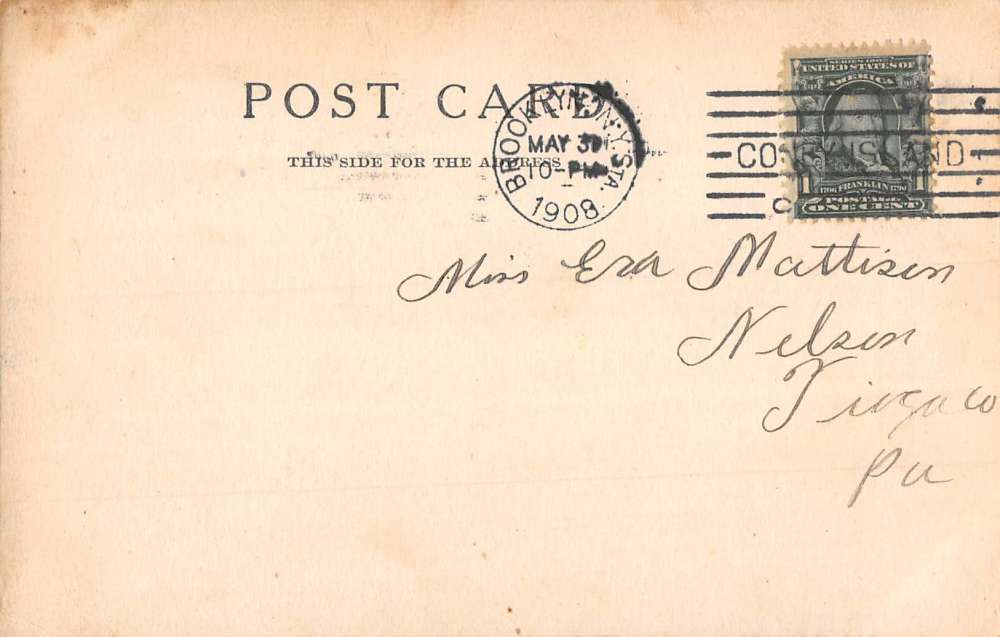 POST CARD
THIS SIDE FOR THE ADDRESS
BROOKLYN, N.Y. STA.
MAY 31
10-PM
1908
SERIES 1902
UNITED STATES OF
AMERICA
1 1706 FRANKLIN 1790 1
POSTAGE
ONE CENT
CONEY ISLAND
Miss Eza Mattison
Nelson
Tioga co
Pa